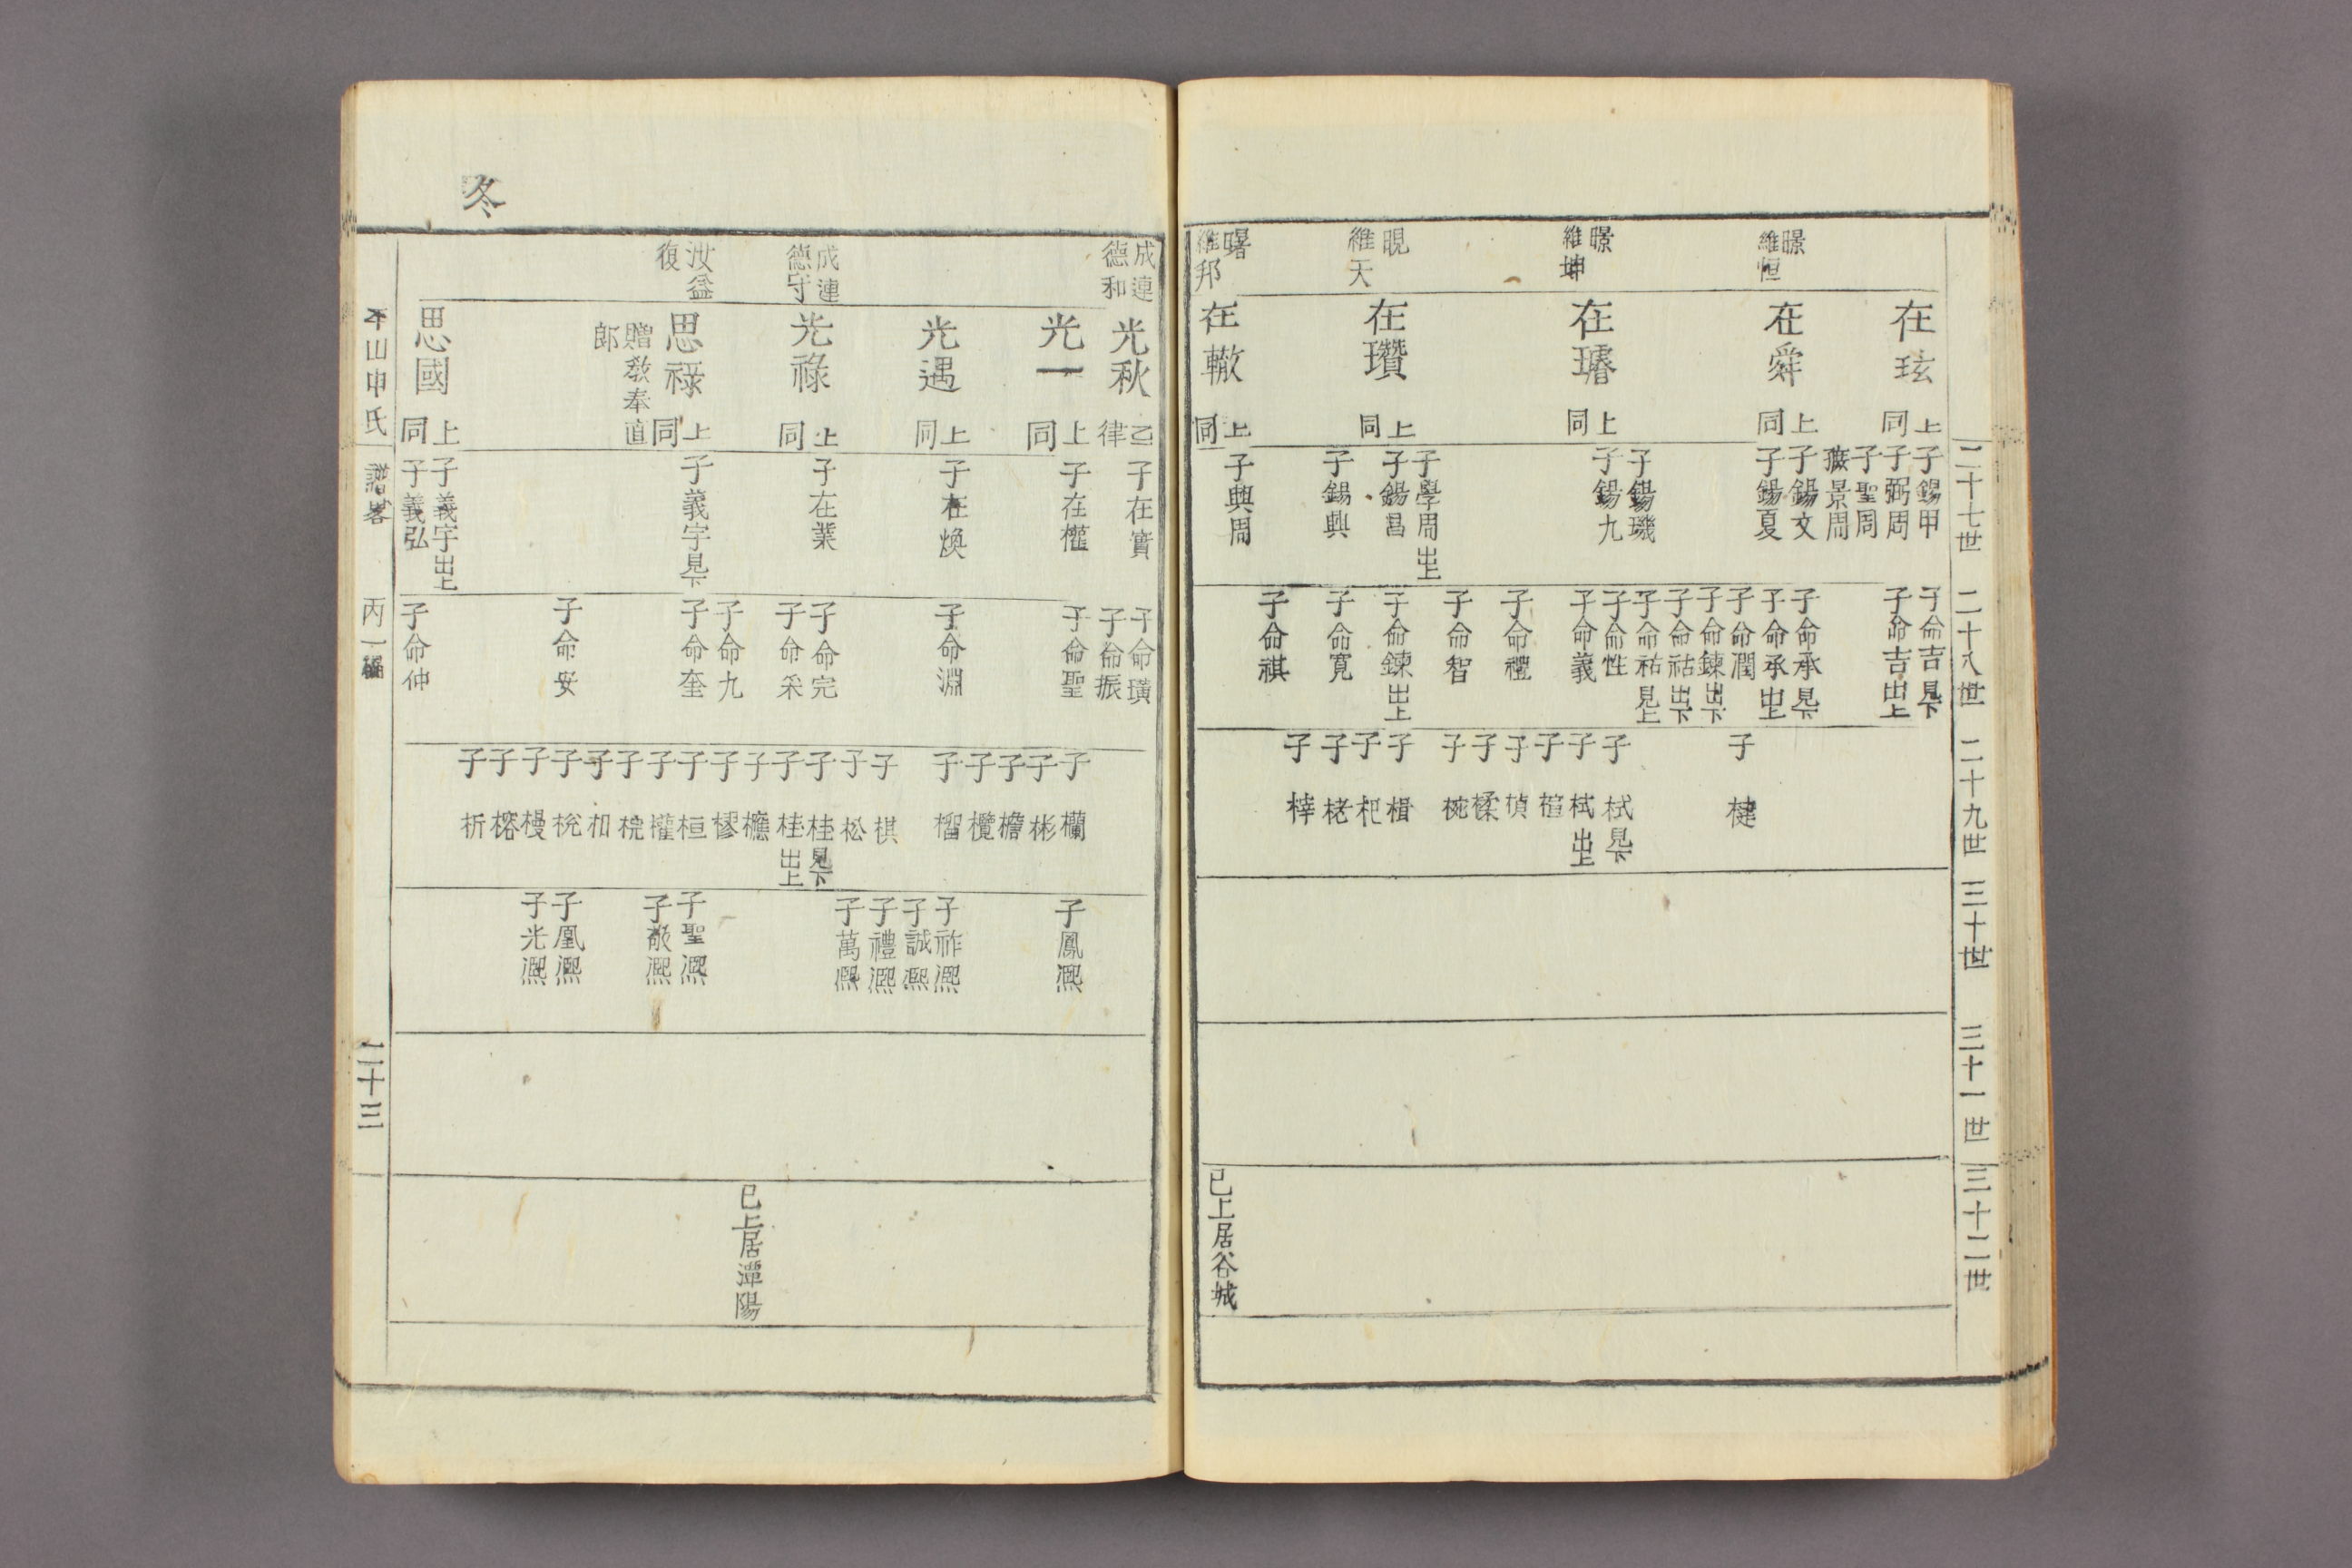 二十七世
二十八世
二十九世
三十世
三十一世
三十二世
暻
維恒
暻
維坤
晛
維天
曙
維邦
在玹
上
同
在舜
上
同
在璿
上
同
在瓚
上
同
在轍
上
同
子錫甲
子弼周
子聖周
景周
子錫文
子錫夏
子錫璣
子錫九
子學周出上
子錫昌
子錫興
子興周
子命吉見下
子命吉出上
子命承見下
子命承出上
子命潤
子命鍊出下
子命祜出下
子命祜見上
子命性
子命義
子命禮
子命智
子命鍊出上
子命寬
子命祺
子楗
子栻見下
子栻出上
子楦
子楨
子楺
子椀
子楫
子杷
子栳
子梓
已上居谷城
冬
成連
德和
成連
德守
汝益
復
光秋
乙
律
光一
上
同
光遇
上
同
光祿
上
同
思祿
上
同
贈教奉直
郎
思國
上
同
子在實
子在權
子在煥
子在業
子義宇見下
子義宇出上
子義弘
子命璜
子命振
子命聖
子命淵
子命完
子命采
子命九
子命奎
子命安
子命仲
子欄
子彬
子檐
子欖
子榴
子棋
子松
子桂見下
子桂出上
子櫶
子樛
子桓
子權
子梡
子和
子梲
子榠
子榕
子析
子鳳熈
子祚熈
子誠熈
子禮熈
子萬熈
子聖熈
子敬熈
子凰熈
子光熈
已上居潭陽
平山申氏
譜畧
丙一編
二十三